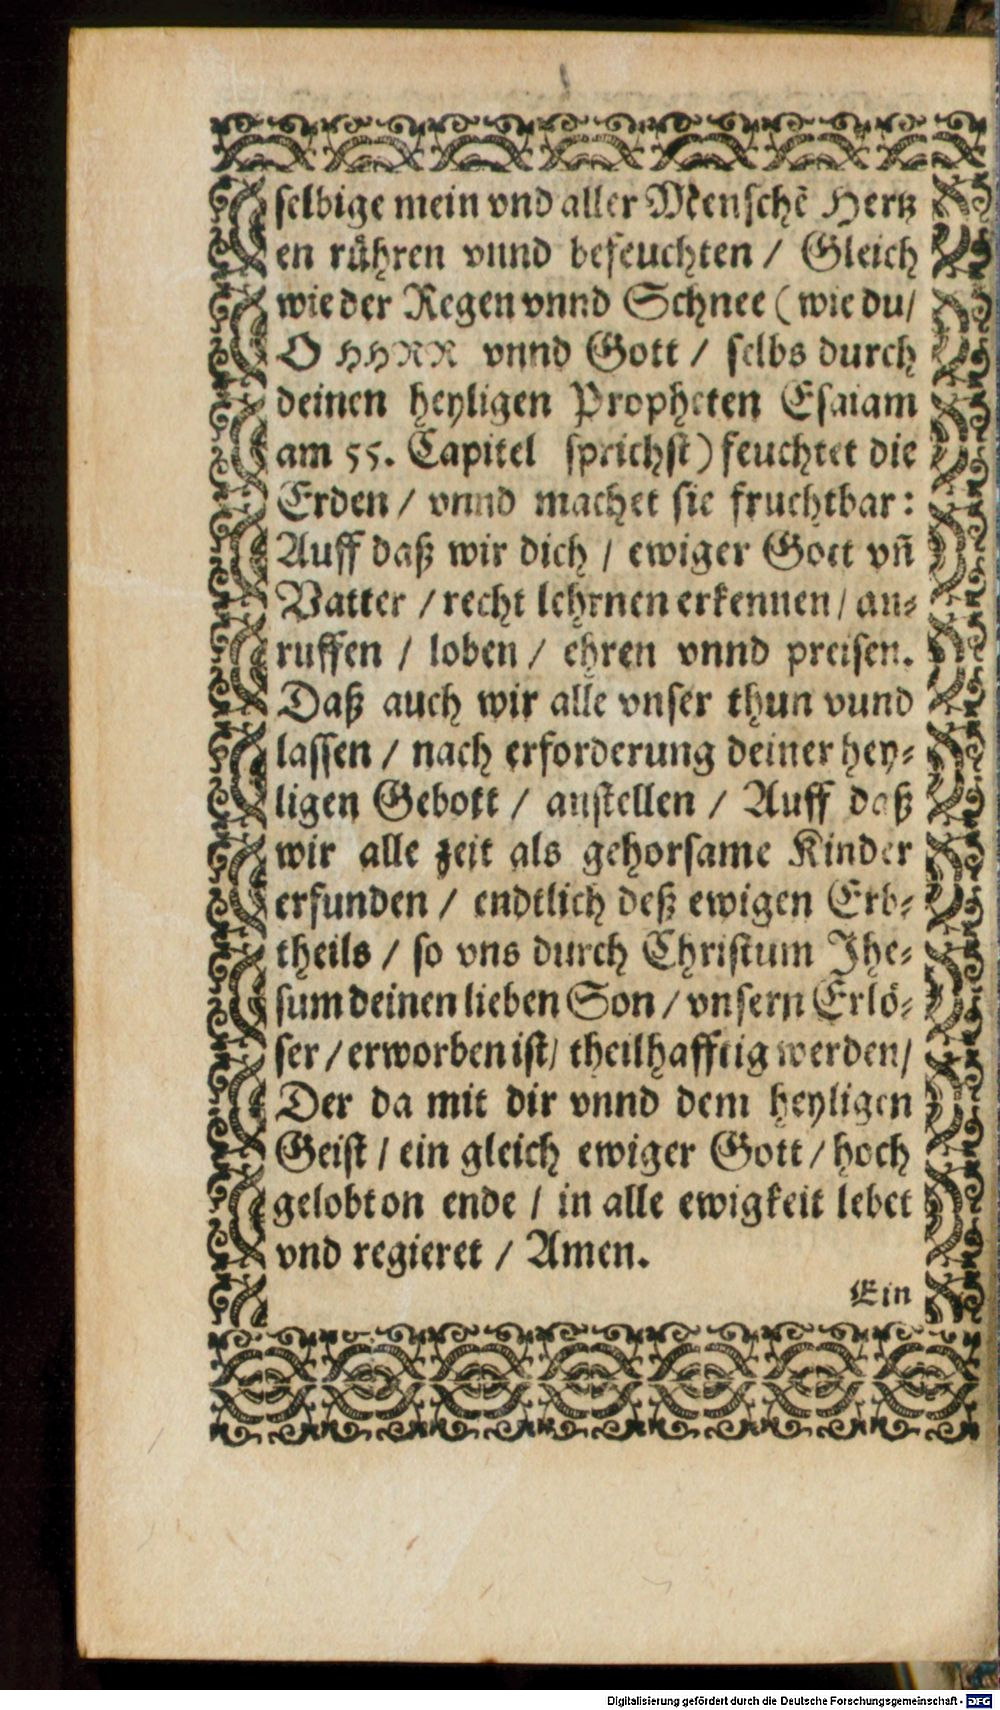 selbige mein vnd aller Menschẽ Hertz
en rühren vnnd befeuchten / Gleich
wie der Regen vnnd Schnee (wie du/
O HHRR vnnd Gott / selbs durch
deinen heyligen Propheten Esaiam
am 55. Capitel sprichst) feuchtet die
Erden / vnnd machet sie fruchtbar:
Auff daß wir dich / ewiger Gott vñ
Vatter / recht lehrnen erkennen / an-
ruffen / loben / ehren vnnd preisen.
Daß auch wir alle vnser thun vund
lassen / nach erforderung deiner hey-
ligen Gebott / anstellen / Auff daß
wir alle zeit als gehorsame Kinder
erfunden / endtlich deß ewigen Erb-
theils / so vns durch Christum Jhe-
sum deinen lieben Son / vnsern Erlö-
ser / erworben ist / theilhafftig werden /
Der da mit dir vnnd dem heyligen
Geist / ein gleich ewiger Gott / hoch
gelobt on ende / in alle ewigkeit lebet
vnd regieret / Amen.
Ein
Digitalisierung gefördert durch die Deutsche Forschungsgemeinschaft - DFG